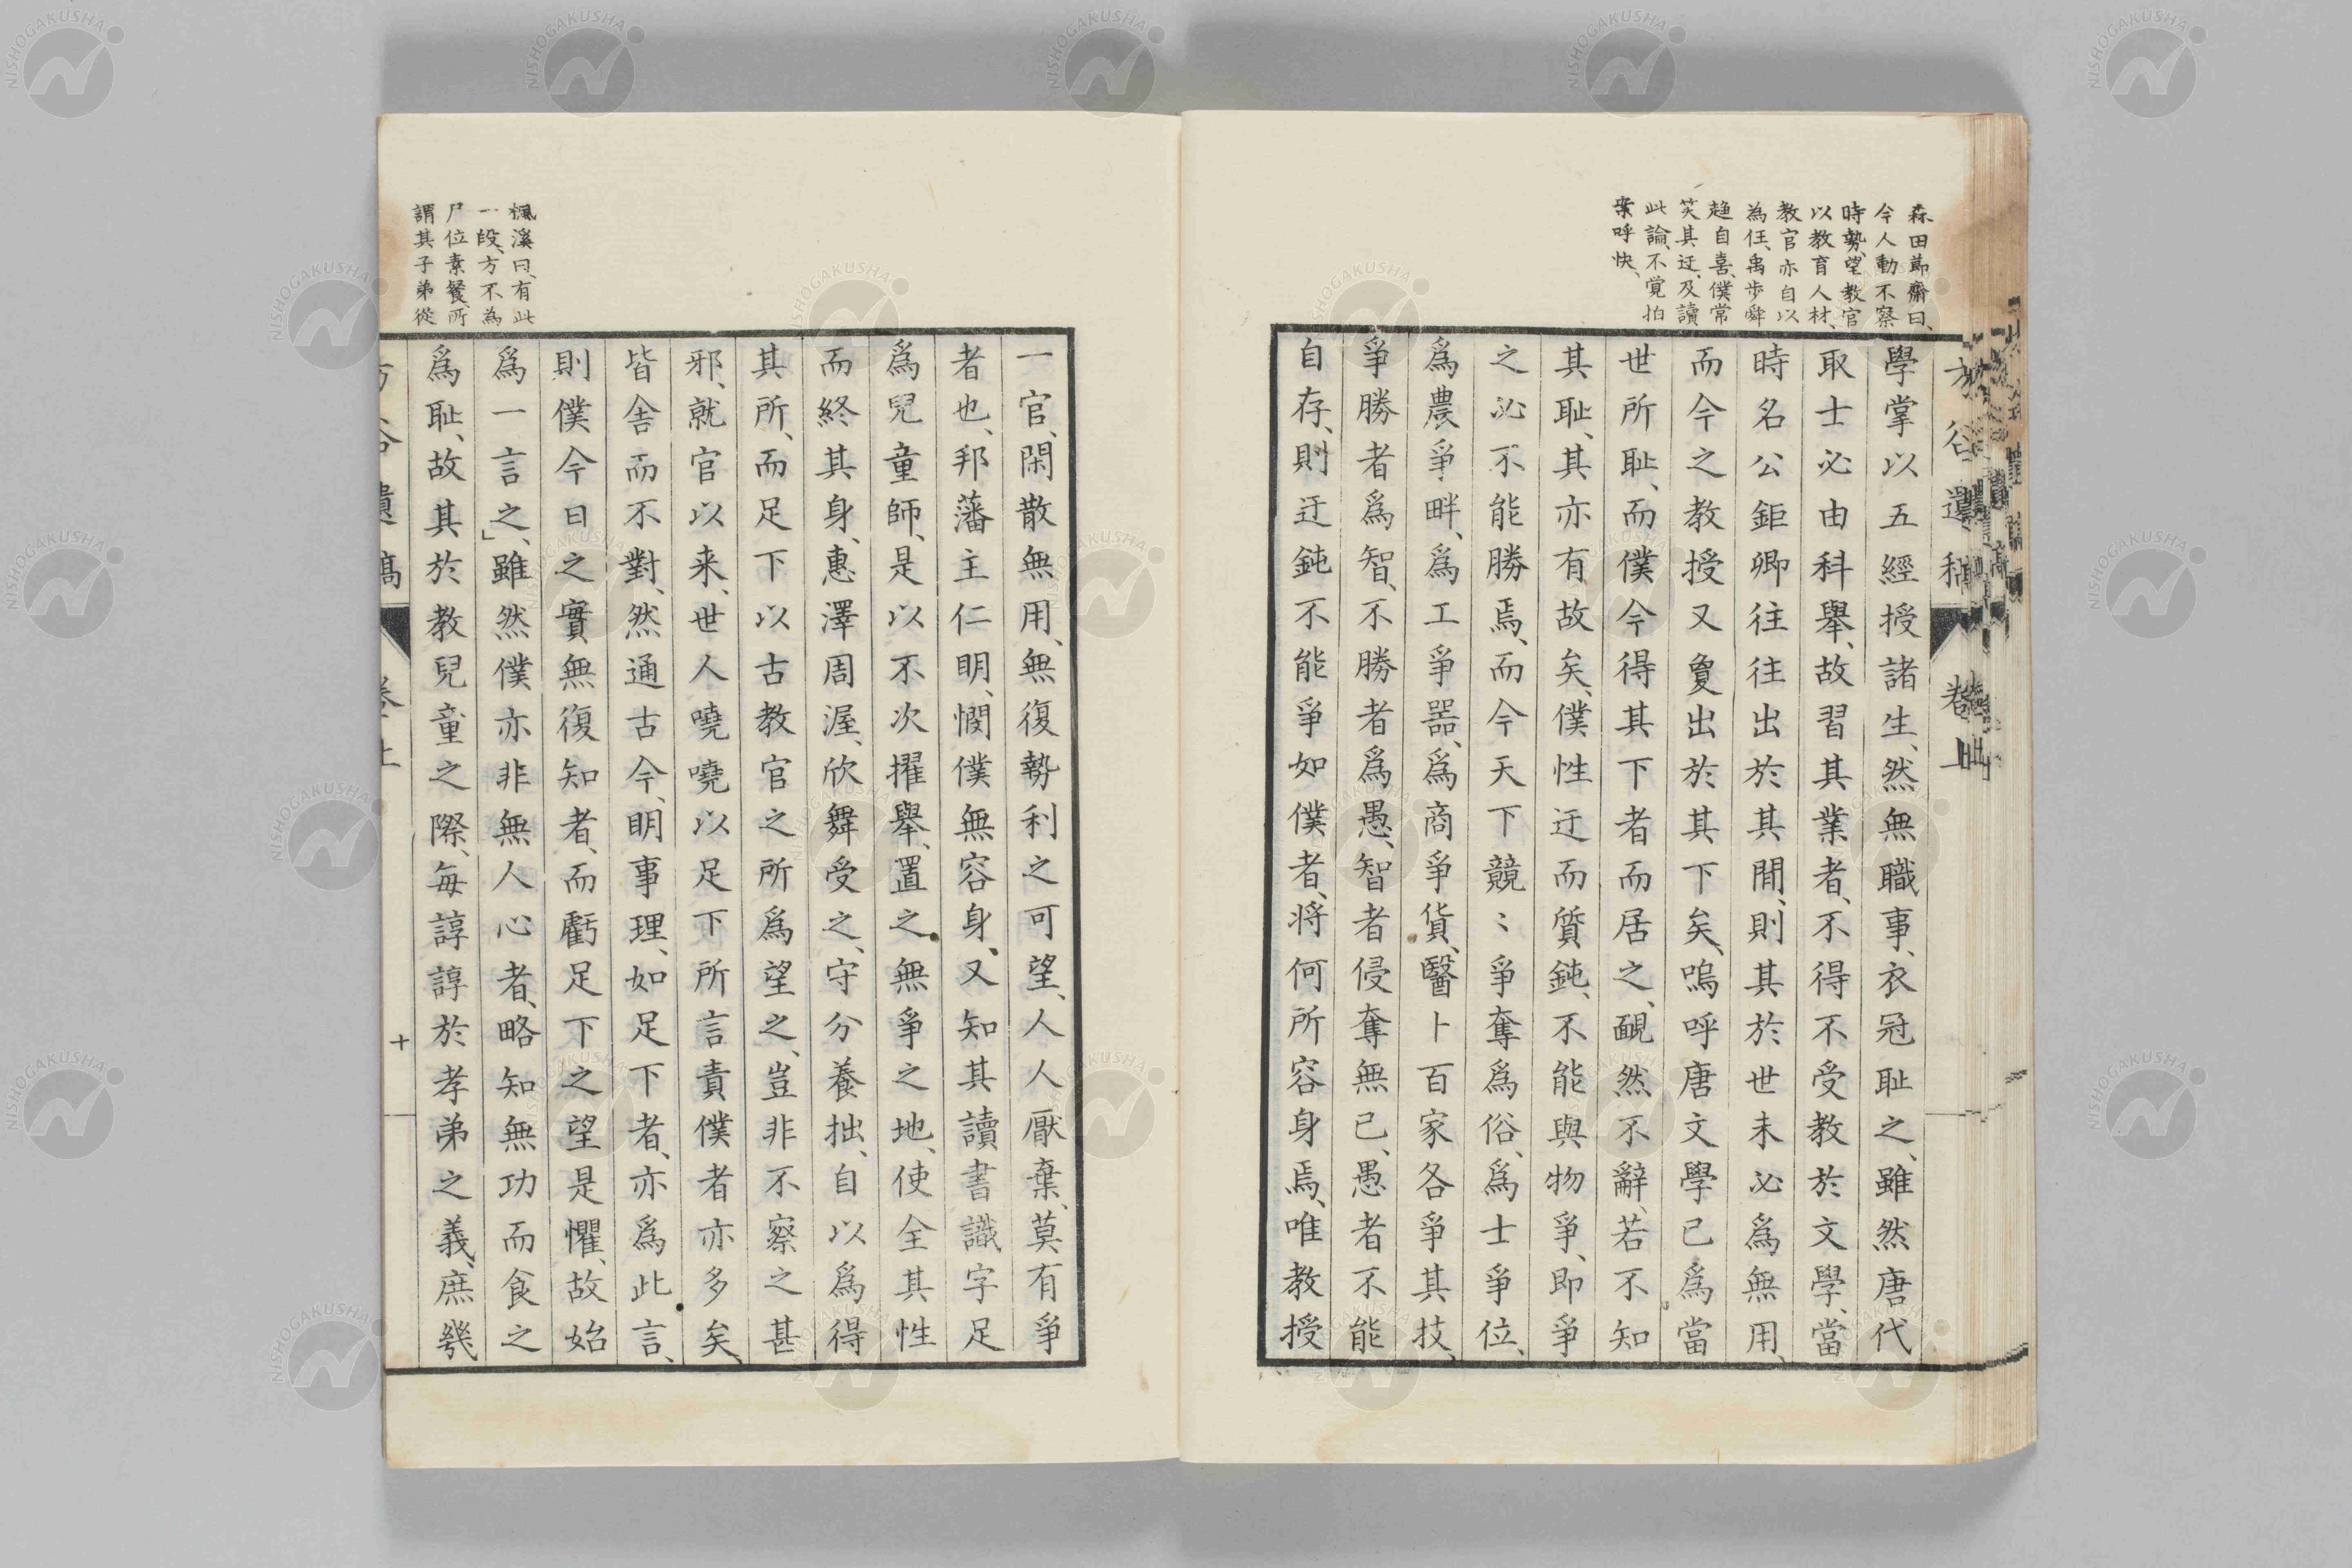 方谷遺稿 卷上
森田莭齋曰、
今人動不察
時勢、望教官
以教育人材、
教官亦自以
為任、禹步舜
趨自喜、僕常
笑其迂、及讀
此論、不覚拍
案呼快、
學掌以五經授諸生、然無職事、衣冠耻之、雖然唐代
取士必由科舉、故習其業者、不得不受教於文學、當
時名公鉅卿往往出於其間、則其於世未必爲無用、
而今之教授又夐出於其下矣、嗚呼唐文學已爲當
世所耻、而僕今得其下者而居之、靦然不辭、若不知
其耻、其亦有故矣、僕性迂而質鈍、不能與物爭、即爭
之必不能勝焉、而今天下競〻爭奪爲俗、爲士爭位、
爲農爭畔、爲工爭噐、爲商爭貨、醫卜百家各爭其技、
爭勝者爲智、不勝者爲愚、智者侵奪無已、愚者不能
自存、則迂鈍不能爭如僕者、将何所容身焉、唯教授
一官、閑散無用、無復勢利之可望、人人厭棄、莫有爭
者也、邦藩主仁明、憫僕無容身、又知其讀書識字足
爲兒童師、是以不次擢舉、置之無爭之地、使全其性
而終其身、惠澤周渥、欣舞受之、守分養拙、自以爲得
其所、而足下以古教官之所爲望之、豈非不察之甚
邪、就官以来、世人嘵嘵以足下所言責僕者亦多矣、
皆舎而不對、然通古今、明事理、如足下者、亦爲此言、
則僕今日之實無復知者、而虧足下之望是懼、故始
爲一言之、」雖然僕亦非無人心者、略知無功而食之
爲耻、故其於教兒童之際、毎諄諄於孝弟之義、庶幾
楓溪曰、有此
一段、方不為
尸位素餐、所
謂其子弟從
方谷遺稿 卷上 十
NISHOGAKUSHA